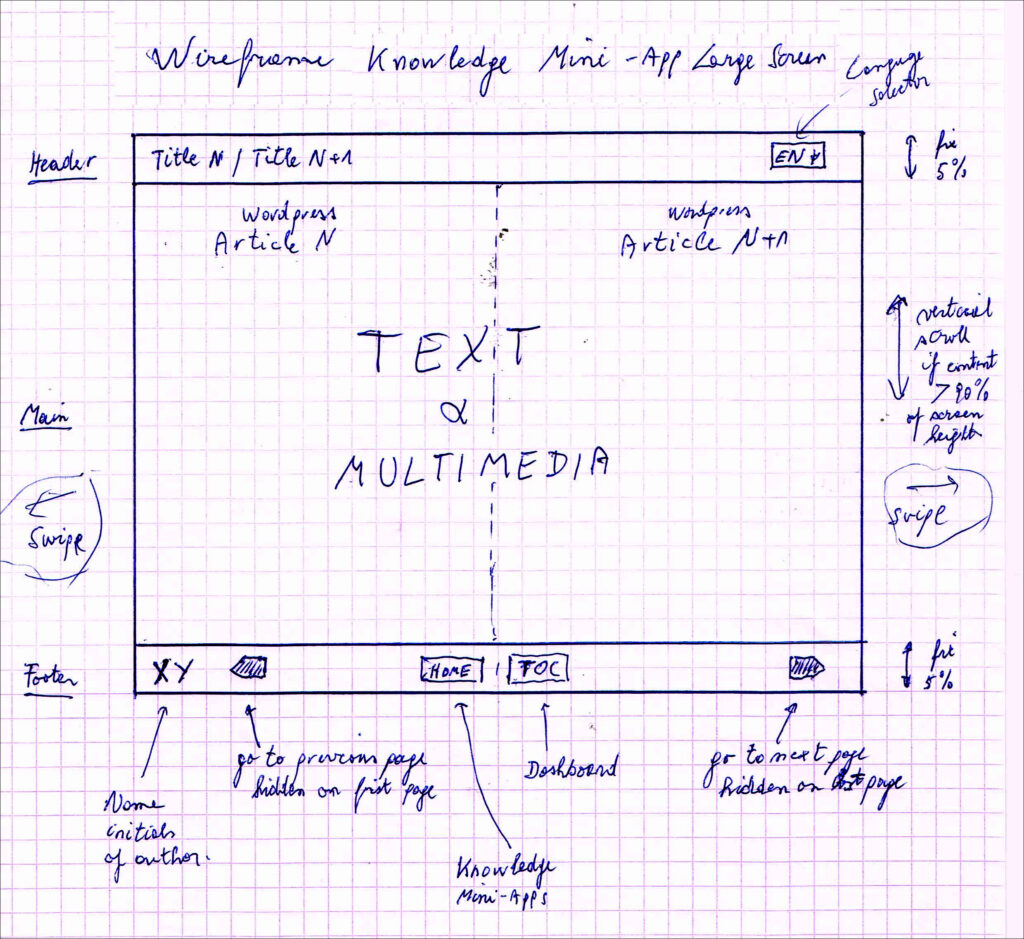 Wireframe Knowledge Mini-App Large Screen
Language
selector
Header
Title N / Title N+1
EN
fix
5%
Wordpress
Article N
Wordpress
Article N+1
TEXT
&
MULTIMEDIA
Main
vertical
scroll
if content
> 90%
of screen
height
Swipe
Swipe
Footer
XY
HOME | TOC
fix
5%
Name
initials
of author.
go to previous page
hidden on first page
Knowledge
Mini-Apps
Dashboard
go to next page
hidden on last page